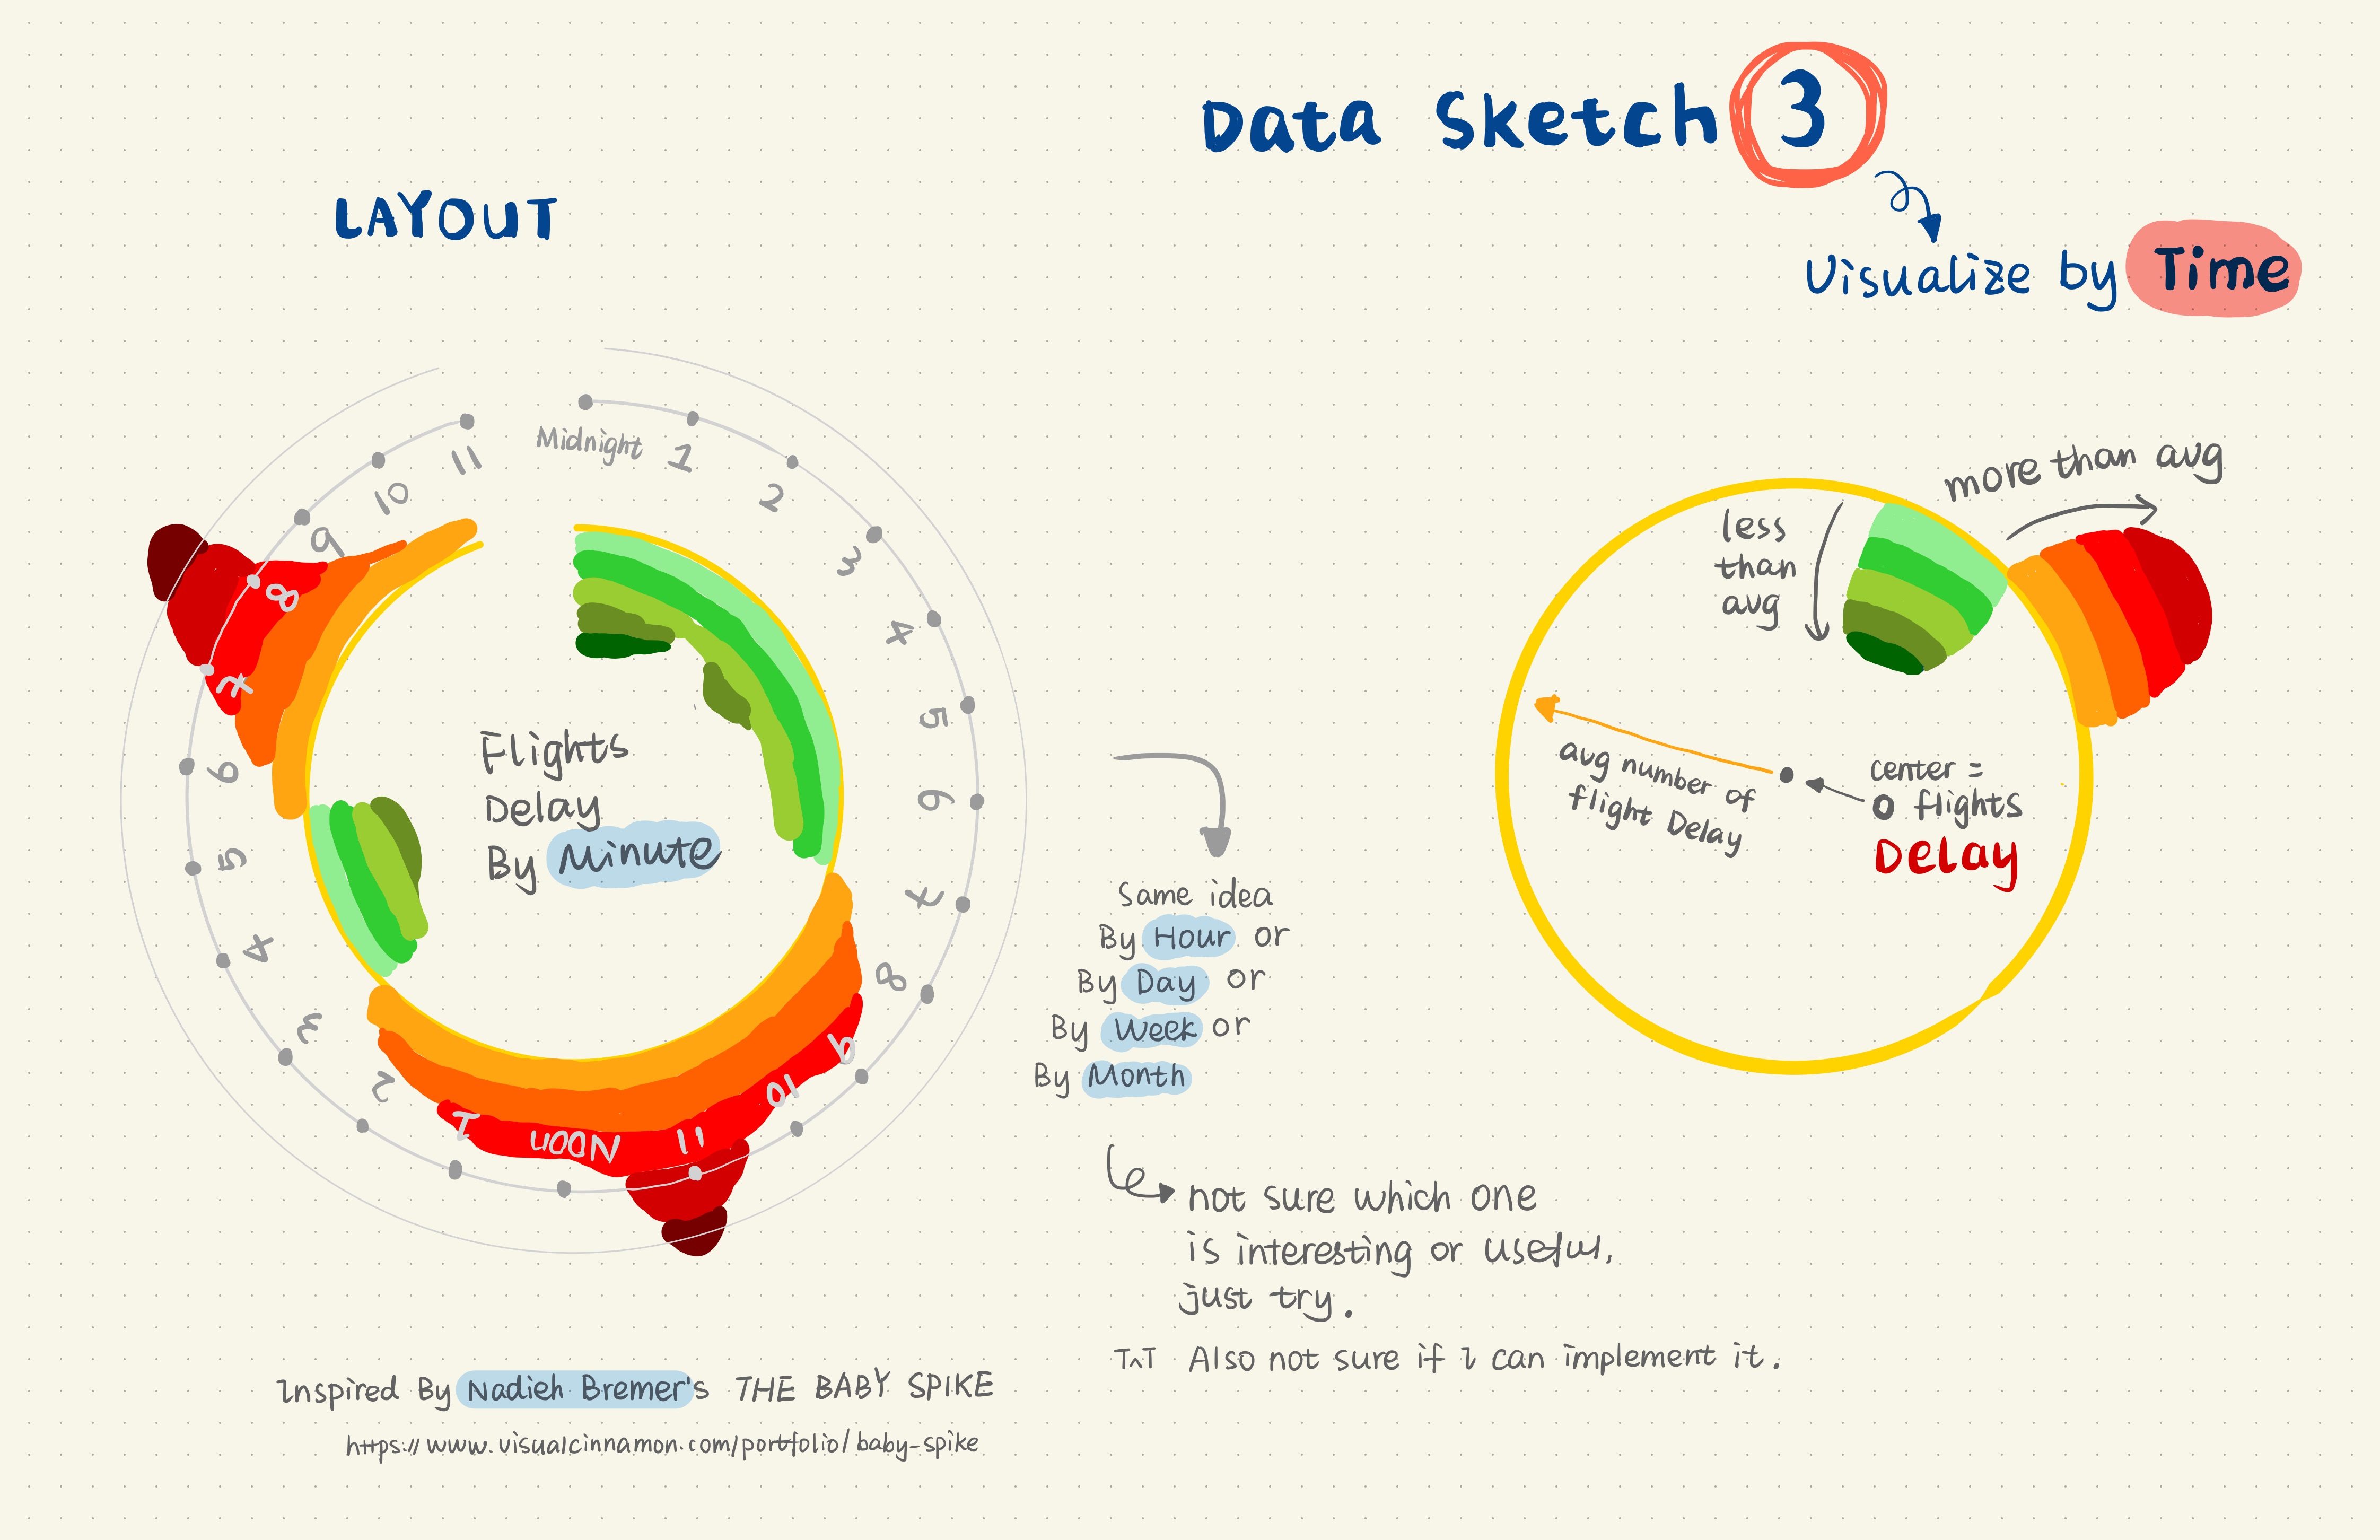 Data Sketch 3
Visualize by Time
LAYOUT
Midnight
1
2
3
4
5
6
7
8
9
10
11
Noon
1
2
3
4
5
6
7
8
9
10
11
Flights
Delay
By Minute
Same idea
By Hour or
By Day or
By Week or
By Month
not sure which one
is interesting or useful,
just try.
TAT Also not sure if I can implement it.
more than avg
less
than
avg
avg number of
flight Delay
center =
0 flights
Delay
Inspired By Nadieh Bremer's THE BABY SPIKE
https://www.visualcinnamon.com/portfolio/baby-spike